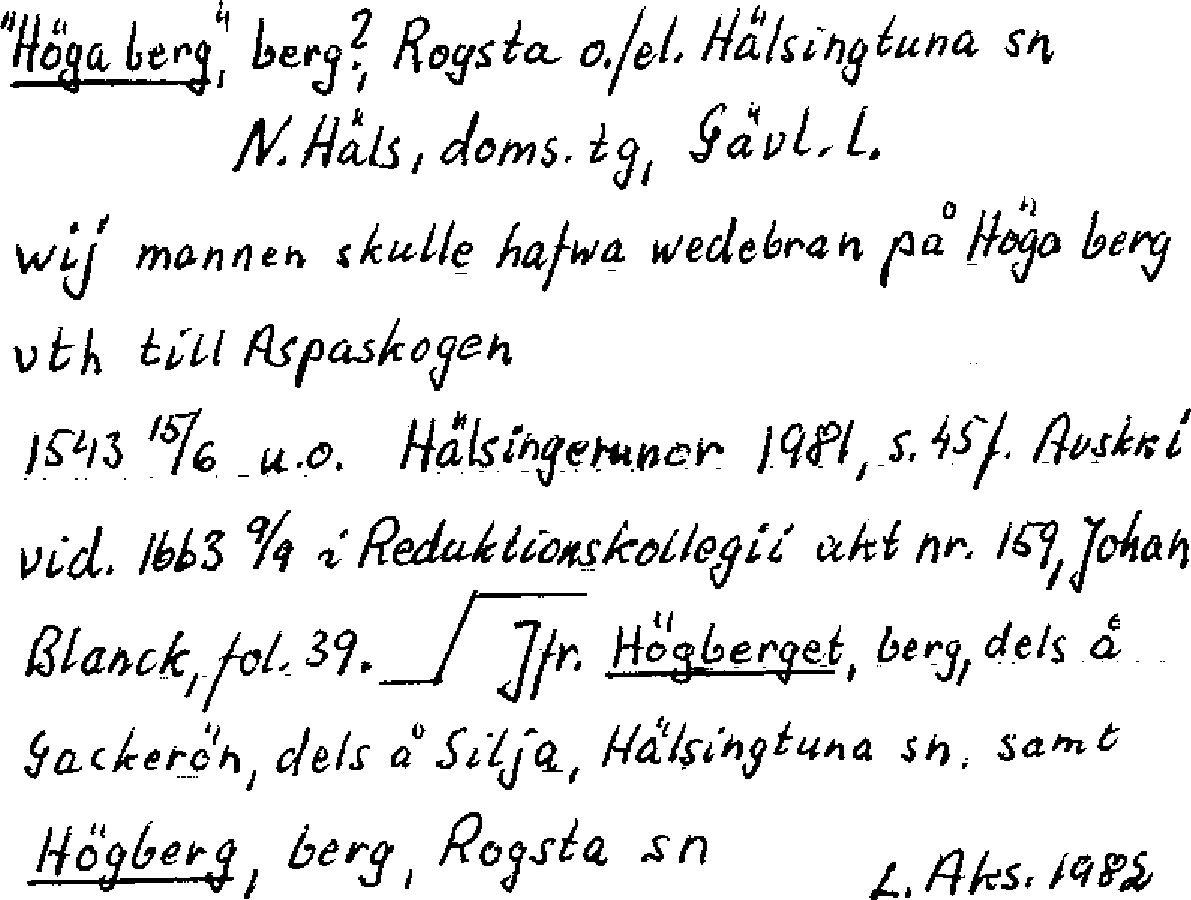 "Höga berg", berg?, Rogsta o./el. Hälsingtuna sn
N. Häls, doms. tg, Gävl. l.
wij mannen skulle hafwa wedebran på Höga berg
vth till Aspaskogen
1543 15/6 u.o. Hälsingerunor 1981, s. 45 f. Avskri
vid. 1663 9/9 i Reduktionskollegii akt nr. 159, Johan
Blanck, fol. 39. Jfr. Högberget, berg, dels å
Gackerön, dels å Silja, Hälsingtuna sn. samt
Högberg, berg, Rogsta sn
L. Aks. 1982